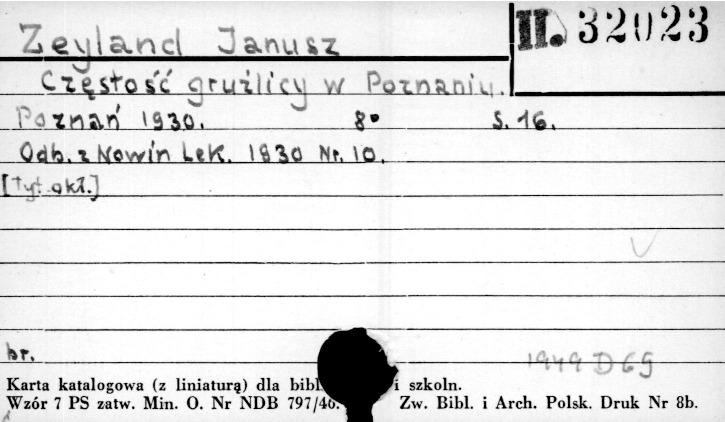 Zeyland Janusz
II. 32023
Częstość gruźlicy w Poznaniu.
Poznań 1930. 8° s. 16.
Odb. z Nowin Lek. 1930 Nr. 10.
[Tyt. okł.]
br.
1949 D 69
Karta katalogowa (z liniaturą) dla bibl i szkoln.
Wzór 7 PS zatw. Min. O. Nr NDB 797/46. Zw. Bibl. i Arch. Polsk. Druk Nr 8b.